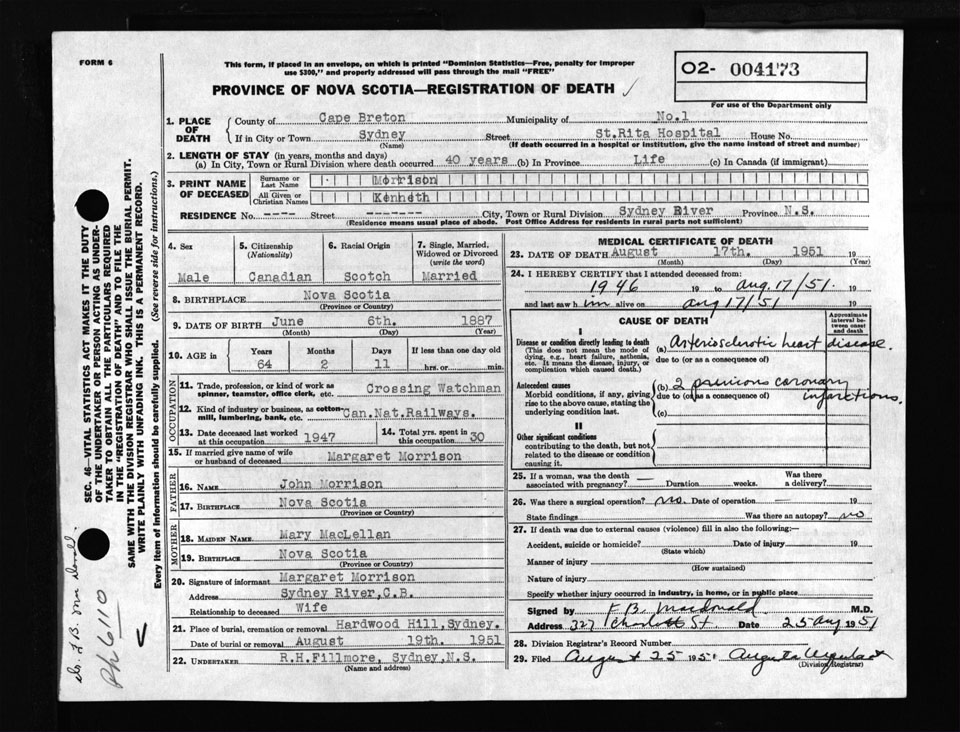 FORM 6
This form, if placed in an envelope, on which is printed "Dominion Statistics—Free, penalty for improper
use $300," and properly addressed will pass through the mail "FREE"
PROVINCE OF NOVA SCOTIA—REGISTRATION OF DEATH ✓
O2- 004173
For use of the Department only
1. PLACE OF DEATH { County of Cape Breton Municipality of No.1
If in City or Town Sydney Street St.Rita Hospital House No.
(Name) (If death occurred in a hospital or institution, give the name instead of street and number)
2. LENGTH OF STAY (in years, months and days)
(a) In City, Town or Rural Division where death occurred 40 years (b) In Province Life (c) In Canada (if immigrant)
3. PRINT NAME OF DECEASED { Surname or Last Name Morrison
All Given or Christian Names Kenneth
RESIDENCE No. ---- Street ------- City, Town or Rural Division Sydney River Province N.S.
(Residence means usual place of abode. Post Office Address for residents in rural parts not sufficient)
4. Sex Male
5. Citizenship (Nationality) Canadian
6. Racial Origin Scotch
7. Single, Married, Widowed or Divorced (write the word) Married
8. BIRTHPLACE Nova Scotia
(Province or Country)
9. DATE OF BIRTH June 6th. 1887
(Month) (Day) (Year)
10. AGE in Years 64 Months 2 Days 11 If less than one day old hrs. or min.
OCCUPATION
11. Trade, profession, or kind of work as spinner, teamster, office clerk, etc. Crossing Watchman
12. Kind of industry or business, as cotton-mill, lumbering, bank, etc. Can.Nat.Railways.
13. Date deceased last worked at this occupation 1947
14. Total yrs. spent in this occupation 30
15. If married give name of wife or husband of deceased Margaret Morrison
FATHER
16. NAME John Morrison
17. BIRTHPLACE Nova Scotia
(Province or Country)
MOTHER
18. MAIDEN NAME Mary MacLellan
19. BIRTHPLACE Nova Scotia
(Province or Country)
20. Signature of informant Margaret Morrison
Address Sydney River,C.B.
Relationship to deceased Wife
21. Place of burial, cremation or removal Hardwood Hill,Sydney.
Date of burial or removal August 19th. 1951
22. UNDERTAKER R.H.Fillmore, Sydney,N.S.
(Name and address)
MEDICAL CERTIFICATE OF DEATH
23. DATE OF DEATH August 17th. 1951 19
(Month) (Day) (Year)
24. I HEREBY CERTIFY that I attended deceased from:
1946 19 to Aug.17/51. 19
and last saw h im alive on Aug 17/51 19
CAUSE OF DEATH
Approximate interval between onset and death
I
Disease or condition directly leading to death
(This does not mean the mode of dying, e.g., heart failure, asthenia, etc. It means the disease, injury, or complication which caused death.)
(a) Arteriosclerotic heart disease.
due to (or as a consequence of)
Antecedent causes
Morbid conditions, if any, giving rise to the above cause, stating the underlying condition last.
(b) 2 previous coronary infarctions.
due to (or as a consequence of)
(c)
II
Other significant conditions
contributing to the death, but not related to the disease or condition causing it.
25. If a woman, was the death associated with pregnancy? — Duration weeks. Was there a delivery?
26. Was there a surgical operation? no. Date of operation — 19
State findings Was there an autopsy? no
27. If death was due to external causes (violence) fill in also the following:—
Accident, suicide or homicide? Date of injury 19
(State which)
Manner of injury
(How sustained)
Nature of injury
Specify whether injury occurred in industry, in home, or in public place
Signed by F B. Macdonald M.D.
Address 327 Charlotte St Date 25 Aug 1951
28. Division Registrar's Record Number
29. Filed August 25 1951 Augusta
(Division Registrar)
SEC. 46—VITAL STATISTICS ACT MAKES IT THE DUTY
OF THE UNDERTAKER OR PERSON ACTING AS UNDER-
TAKER TO OBTAIN ALL THE PARTICULARS REQUIRED
IN THE "REGISTRATION OF DEATH" AND TO FILE THE
SAME WITH THE DIVISION REGISTRAR WHO SHALL ISSUE THE BURIAL PERMIT.
WRITE PLAINLY WITH UNFADING INK. THIS IS A PERMANENT RECORD.
Every item of information should be carefully supplied. (See reverse side for instructions.)
Ph 6110